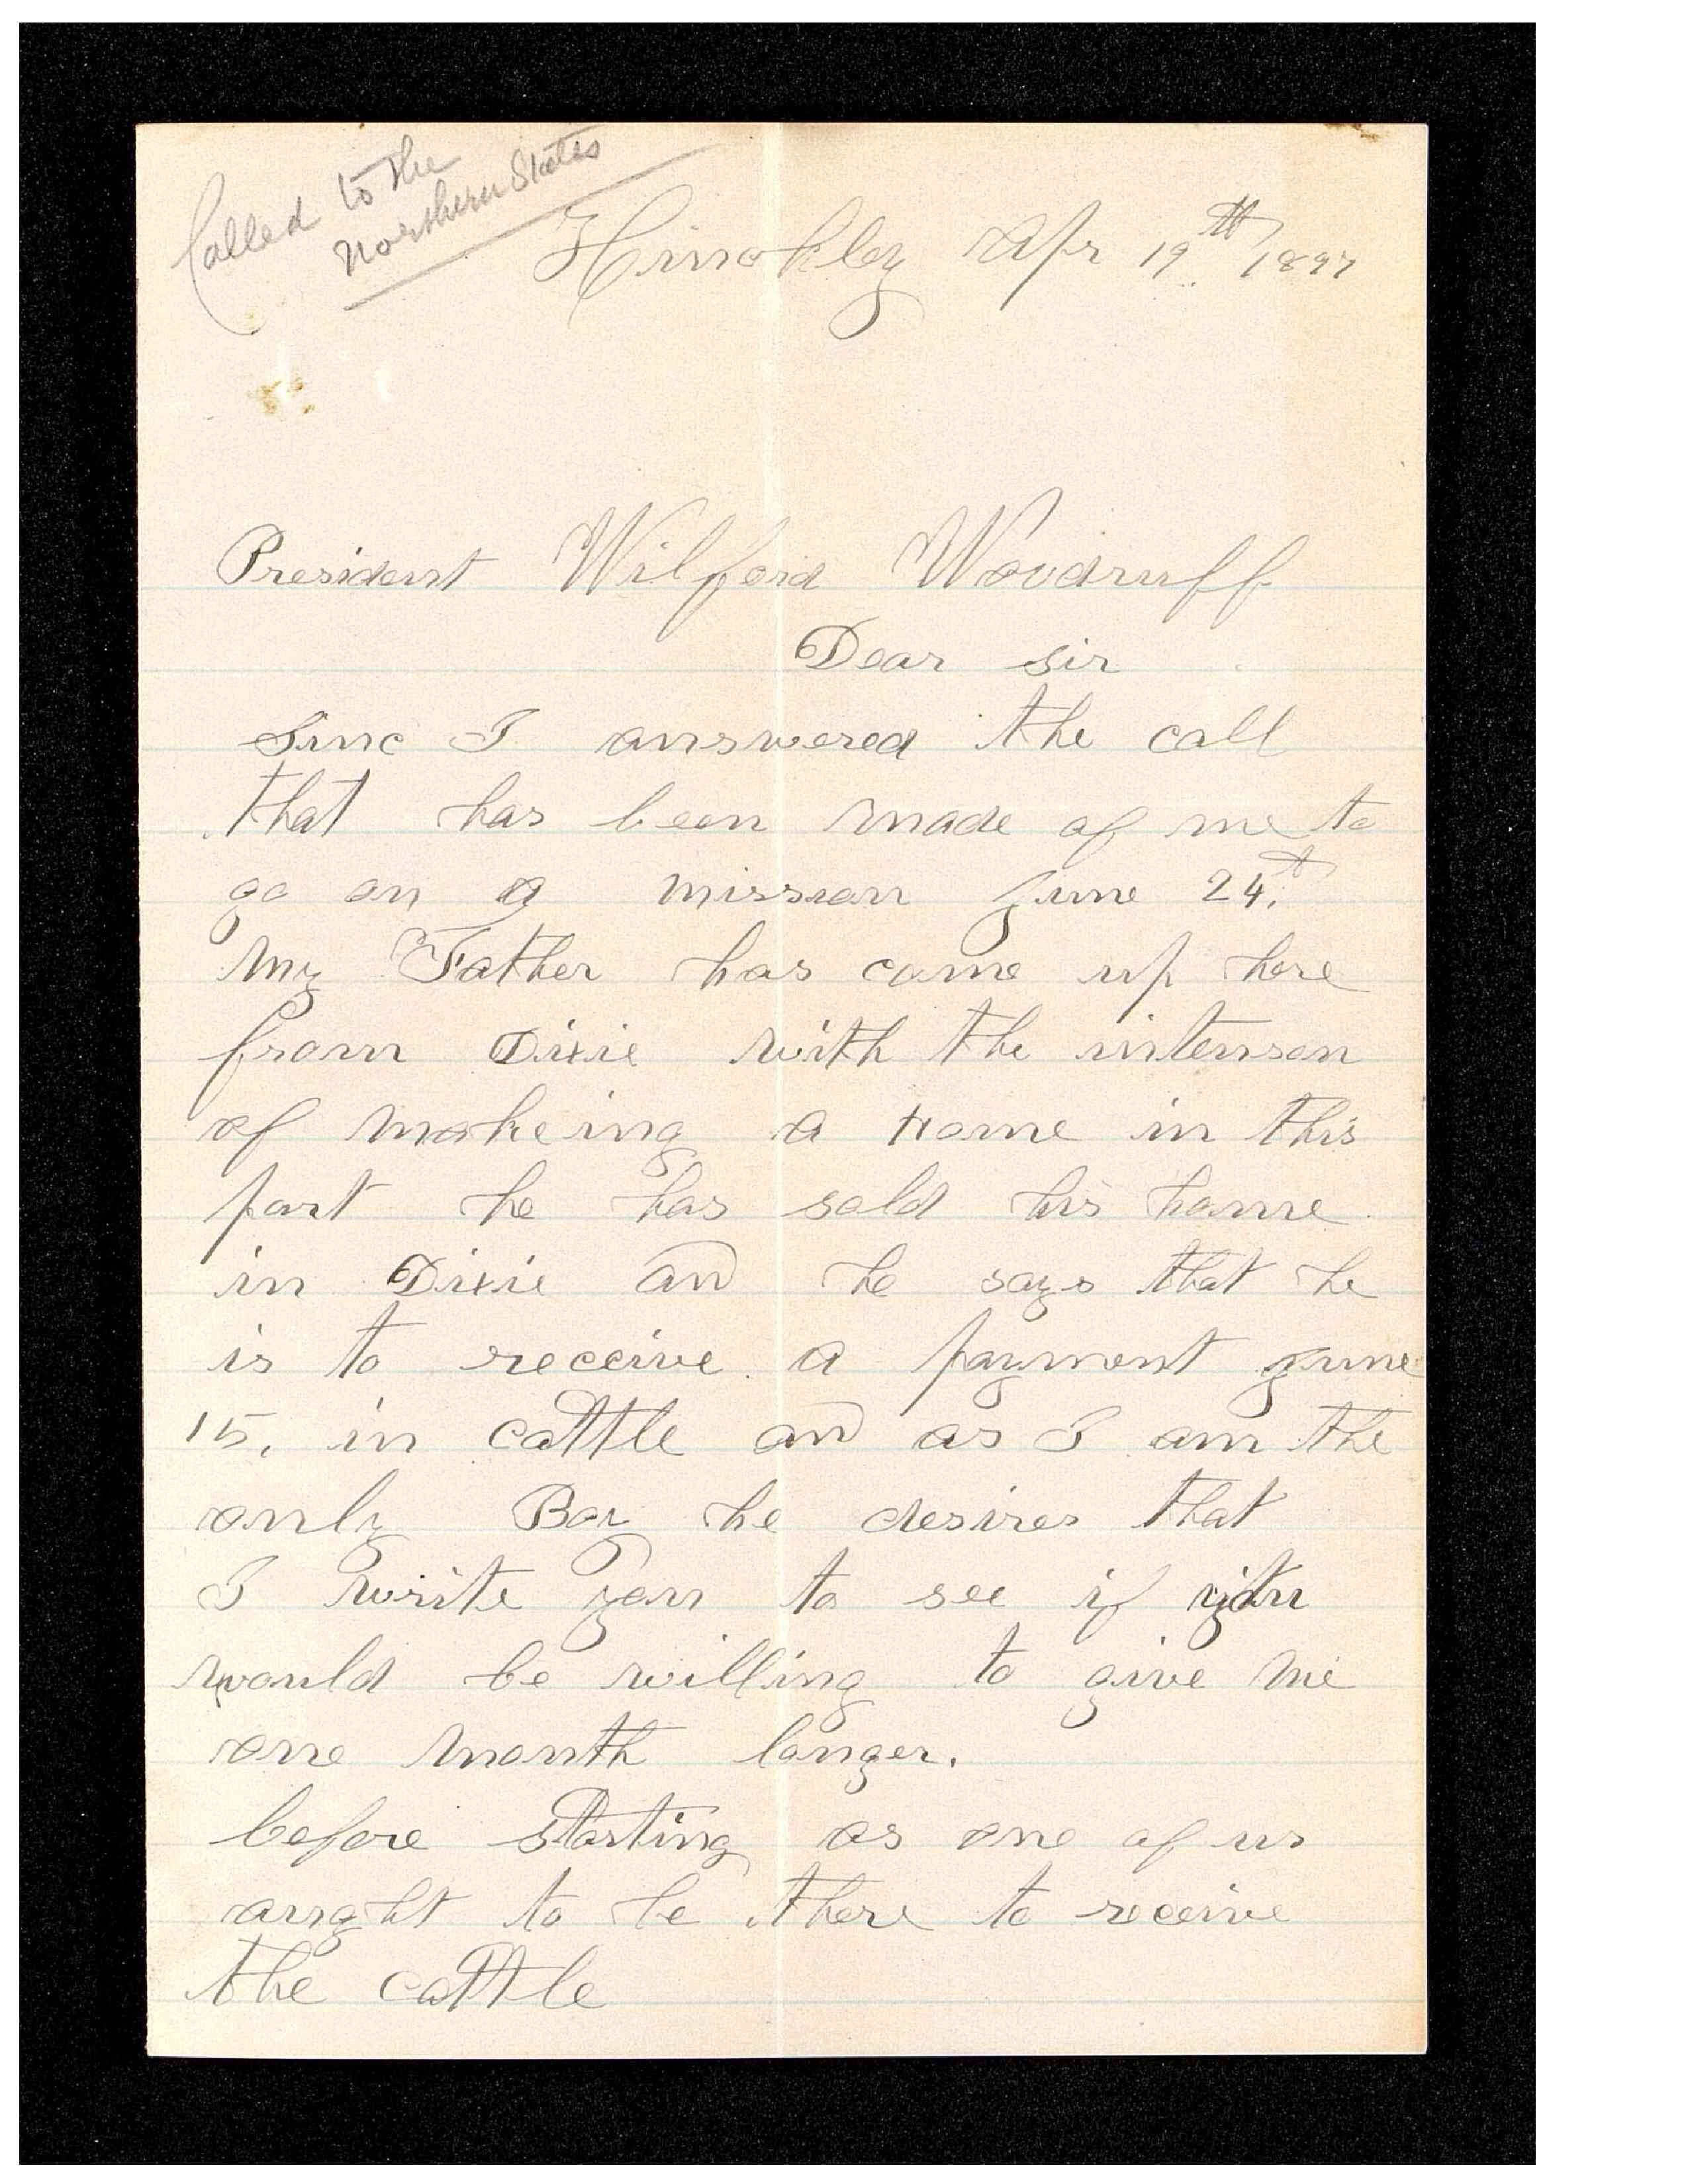 Called to the
Northern States
Hinckley Apr 19th 1897
President Wilford Woodruff
Dear sir
Sinc I answered the call
that has been made of me to
go on a mission June 24.t
My Father has come up here
from Dixie with the intenson
of makeing a Home in this
part he has sold his home
in Dixie and he says that he
is to receive a payment June
15, in cattle and as I am the
only Boy he desires that
I write you to see if you
would be willing to give me
one month longer.
before starting as one of us
aught to be there to receive
the cattle